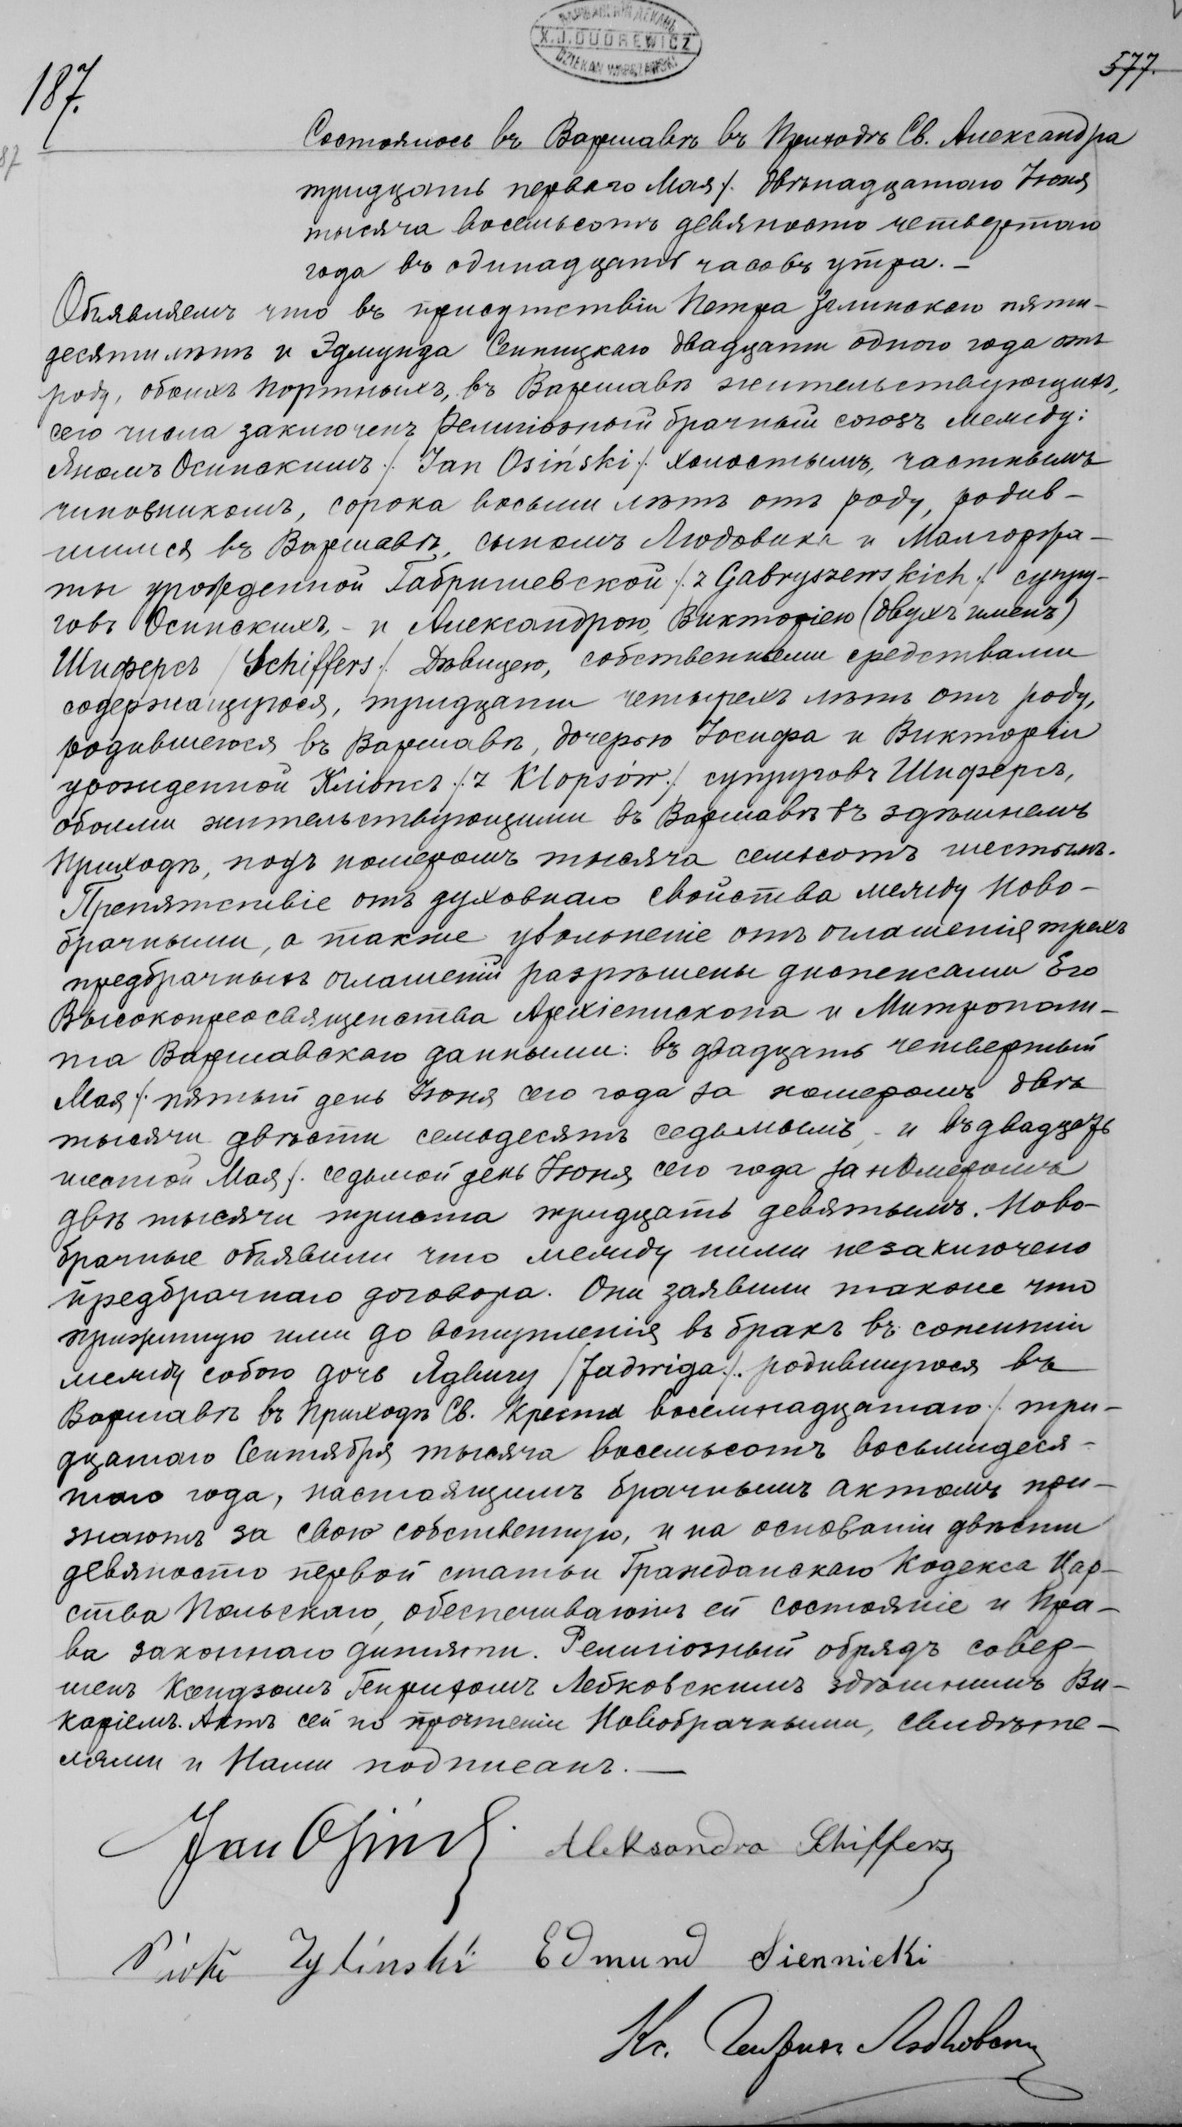 ВАРШАВСКІЙ ДЕКАНЪ
X.J.DUDREWICZ
DZIEKAN WARSZAWSKI
187.
577.
87
Состоялось въ Варшавѣ въ Приходѣ Св. Александра
тридцать перваго Мая /. двѣнадцатаго Іюня
тысяча восемьсотъ девяносто четвертаго
года въ одинадцать часовъ утра. —
Объявляемъ что въ присутствіи Петра Зелинскаго пяти-
десятилѣтъ и Эдмунда Сенницкаго двадцати одного года отъ
роду, обоихъ портныхъ, въ Варшавѣ жительствующихъ,
сего числа заключенъ Религіозный брачный союзъ между:
Яномъ Осинскимъ /. Jan Osiński /. холостымъ, частнымъ
чиновникомъ, сорока восьми лѣтъ отъ роду, родив-
шимся въ Варшавѣ, сыномъ Людовика и Малгоржа-
ты урожденной Габришевской /. z Gabryszewskich /. супру-
говъ Осинскихъ, - и Александрою, Викторіею (двухъ именъ)
Шиферсъ / Schiffers /. Дѣвицею, собственными средствами
содержащуюся, тридцати четырехъ лѣтъ отъ роду,
родившеюся въ Варшавѣ, дочерью Іосифа и Викторіи
урожденной Клопсъ /. z Klopsów /. супруговъ Шиферсъ,
обоими жительствующими въ Варшавѣ въ здѣшнемъ
Приходѣ, подъ номеромъ тысяча семьсотъ шестымъ.
Препятствіе отъ духовнаго свойства между Ново-
брачными, а также увольненіе отъ оглашенія трехъ
предбрачныхъ оглашеній разрѣшены диспенсами Его
Высокопреосвященства Архіепископа и Митрополи-
та Варшавскаго данными: въ двадцать четвертый
Мая /. пятый день Іюня сего года за номеромъ двѣ
тысячи двѣсти семьдесятъ седьмымъ, - и въ двадцать
шестой Мая /. седьмой день Іюня сего года за номеромъ
двѣ тысячи триста тридцать девятымъ. Ново-
брачные объявили что между ними незаключено
предбрачнаго договора. Они заявили также что
прижитую ими до вступленія въ бракъ въ сожитіи
между собою дочь Ядвигу / Jadwiga /. родившуюся въ
Варшавѣ въ Приходѣ Св. Креста восемнадцатаго /. три-
дцатаго Сентября тысяча восемьсотъ восьмидеся-
таго года, настоящимъ брачнымъ актомъ при-
знаютъ за свою собственную, и на основаніи двѣсти
девяносто первой статьи Гражданскаго Кодекса Цар-
ства Польскаго, обеспечиваютъ ей состояніе и Пра-
ва законнаго дитяти. Религіозный обрядъ совер-
шенъ Ксендзомъ Генрихомъ Лебковскимъ здѣшнимъ Ви-
каріемъ. Актъ сей по прочтеніи Новобрачными, свидѣте-
лями и Нами подписанъ. —
Jan Osiński Aleksandra Schiffers
Piotr Zyliński Edmund Siennicki
Кс.